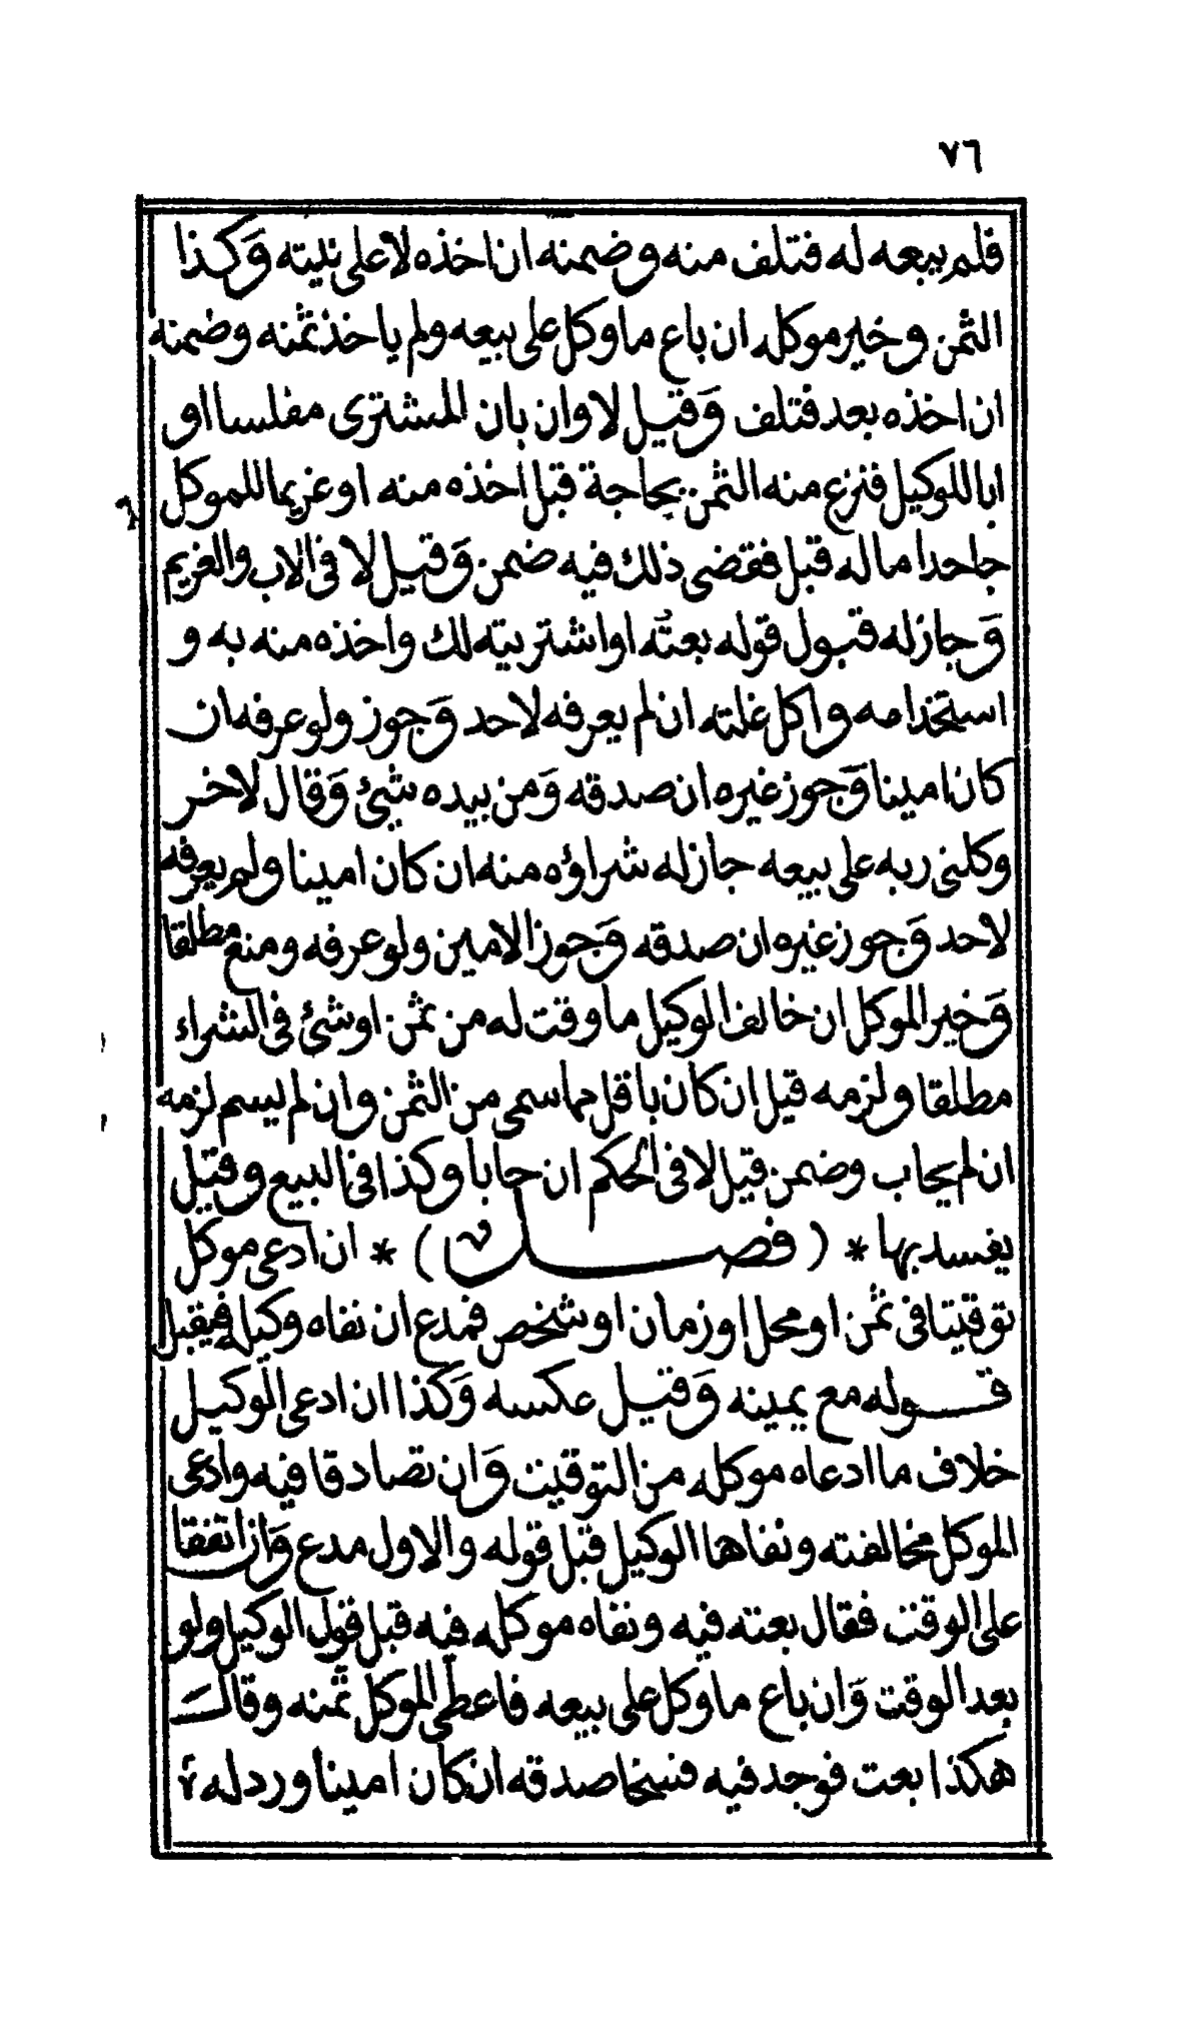 ٧٦
فلم يبعه له فتلف منه وضمنه ان اخذه لا على نيته وَكذا
الثمن وخير موكله ان باع ما وكل على بيعه ولم ياخذ ثمنه وضمنه
ان اخذه بعد فتلف وَقيل لا وان بان المشترى مفلسا او
ابا للوكيل فنزع منه الثمن بحاجة قبل اخذه منه او غريما للموكل
جاحدا ما له قبل فقضى ذلك فيه ضمن وَقيل لا فى الاب والغريم
وَجاز له قبول قوله بعته او اشتريته لك واخذه منه به و
استخدامه واكل غلته ان لم يعرفه لاحد وَجوز ولو عرفه ان
كان امينا وَجوز غيره ان صدقه وَمن بيده شئ وَقال لاخر
وكلنى ربه على بيعه جاز له شراؤه منه ان كان امينا ولم يعرفه
لاحد وَجوز غيره ان صدقه وَجوز الامين ولو عرفه ومنع مطلقا
وَخير الموكل ان خالف الوكيل ما وقت له من ثمن او شئ فى الشراء
مطلقا ولزمه قيل ان كان باقل مما سمى من الثمن وان لم يسم لزمه
ان لم يحاب وضمن قيل لا فى الحكم ان حابا وكذا فى البيع وقيل
يفسد بها * ( فصل ) * ان ادعى موكل
توقيتا فى ثمن او محل او زمان او شخص فمدع ان نفاه وكيله فيقبل
قوله مع يمينه وَقيل عكسه وَكذا ان ادعى الوكيل
خلاف ما ادعاه موكله من التوقيت وَان تصادقا فيه وادعى
الموكل مخالفته ونفاها الوكيل قبل قوله والاول مدع وَان اتفقا
على الوقت فقال بعته فيه ونفاه موكله فيه قبل قول الوكيل ولو
بعد الوقت وَان باع ما وكل على بيعه فاعطى الموكل ثمنه وقال
هكذا بعت فوجد فيه فسخا صدقه ان كان امينا ورد له